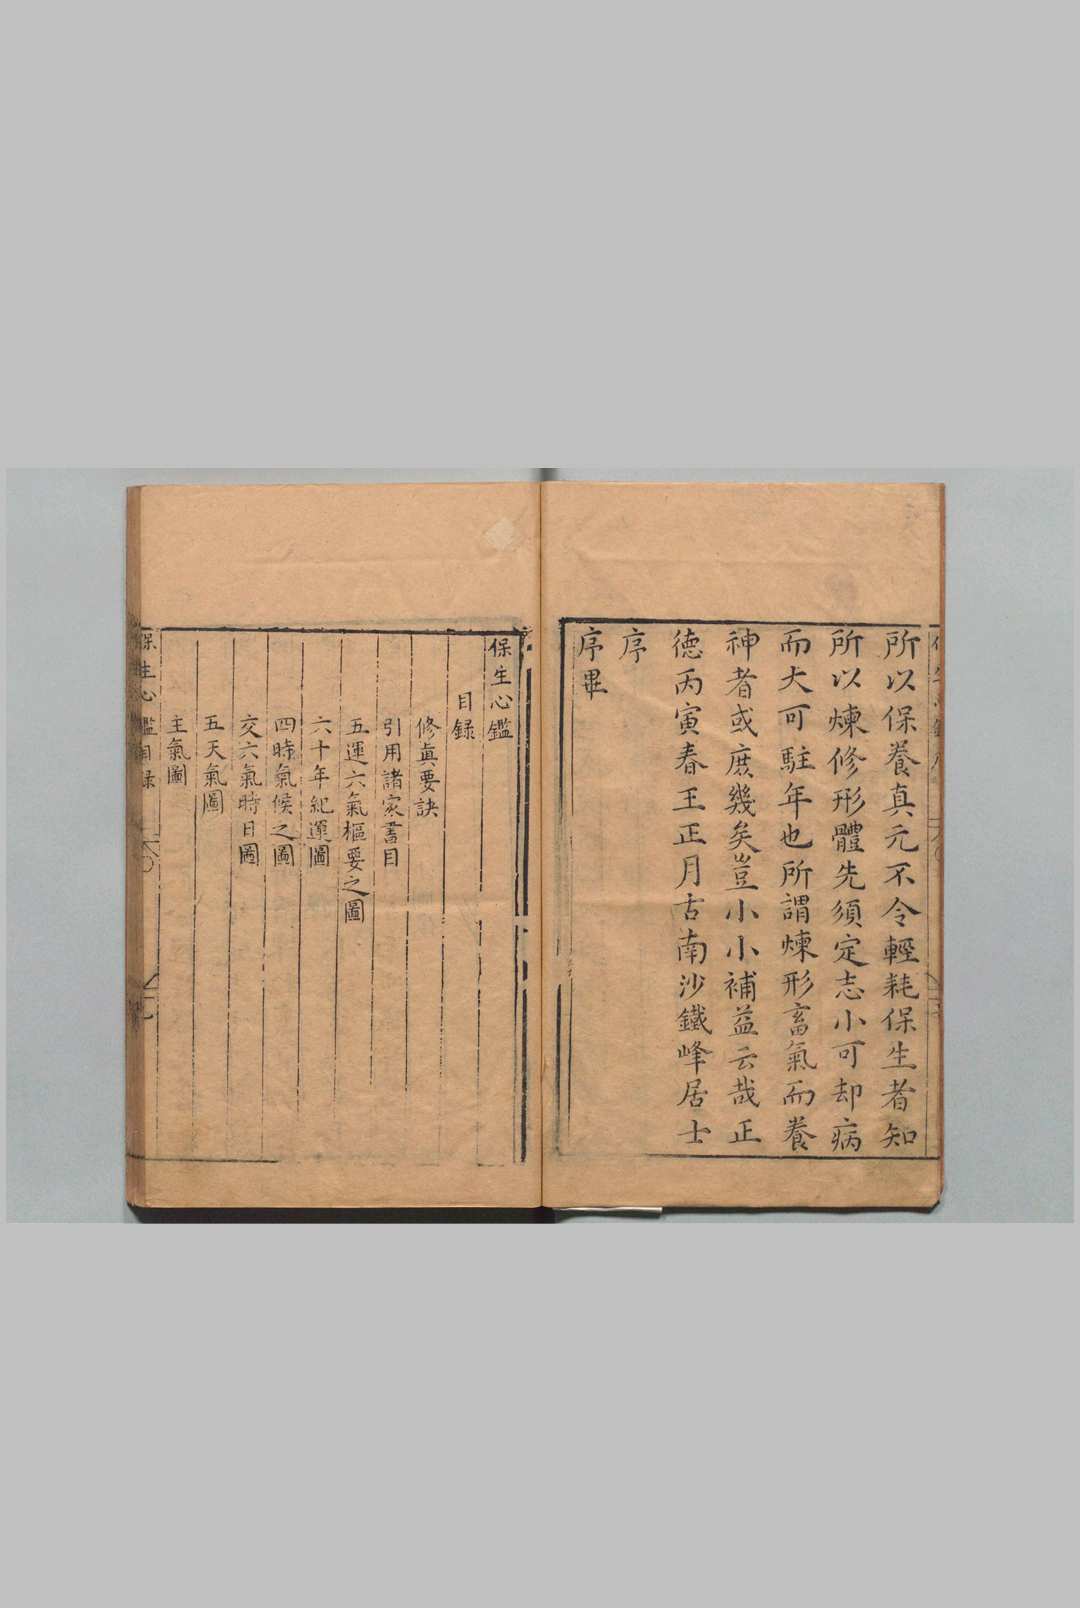 所以保養真元不令輕耗保生者知
所以煉修形體先須定志小可却病
而大可駐年也所謂煉形畜氣而養
神者或庶幾矣豈小小補益云哉正
德丙寅春王正月古南沙鐵峰居士
序
序畢
保生心鑑
目録
修真要訣
引用諸家書目
五運六氣樞要之圖
六十年紀運圖
四時氣候之圖
交六氣時日圖
五天氣圖
主氣圖
保生心鑑目録